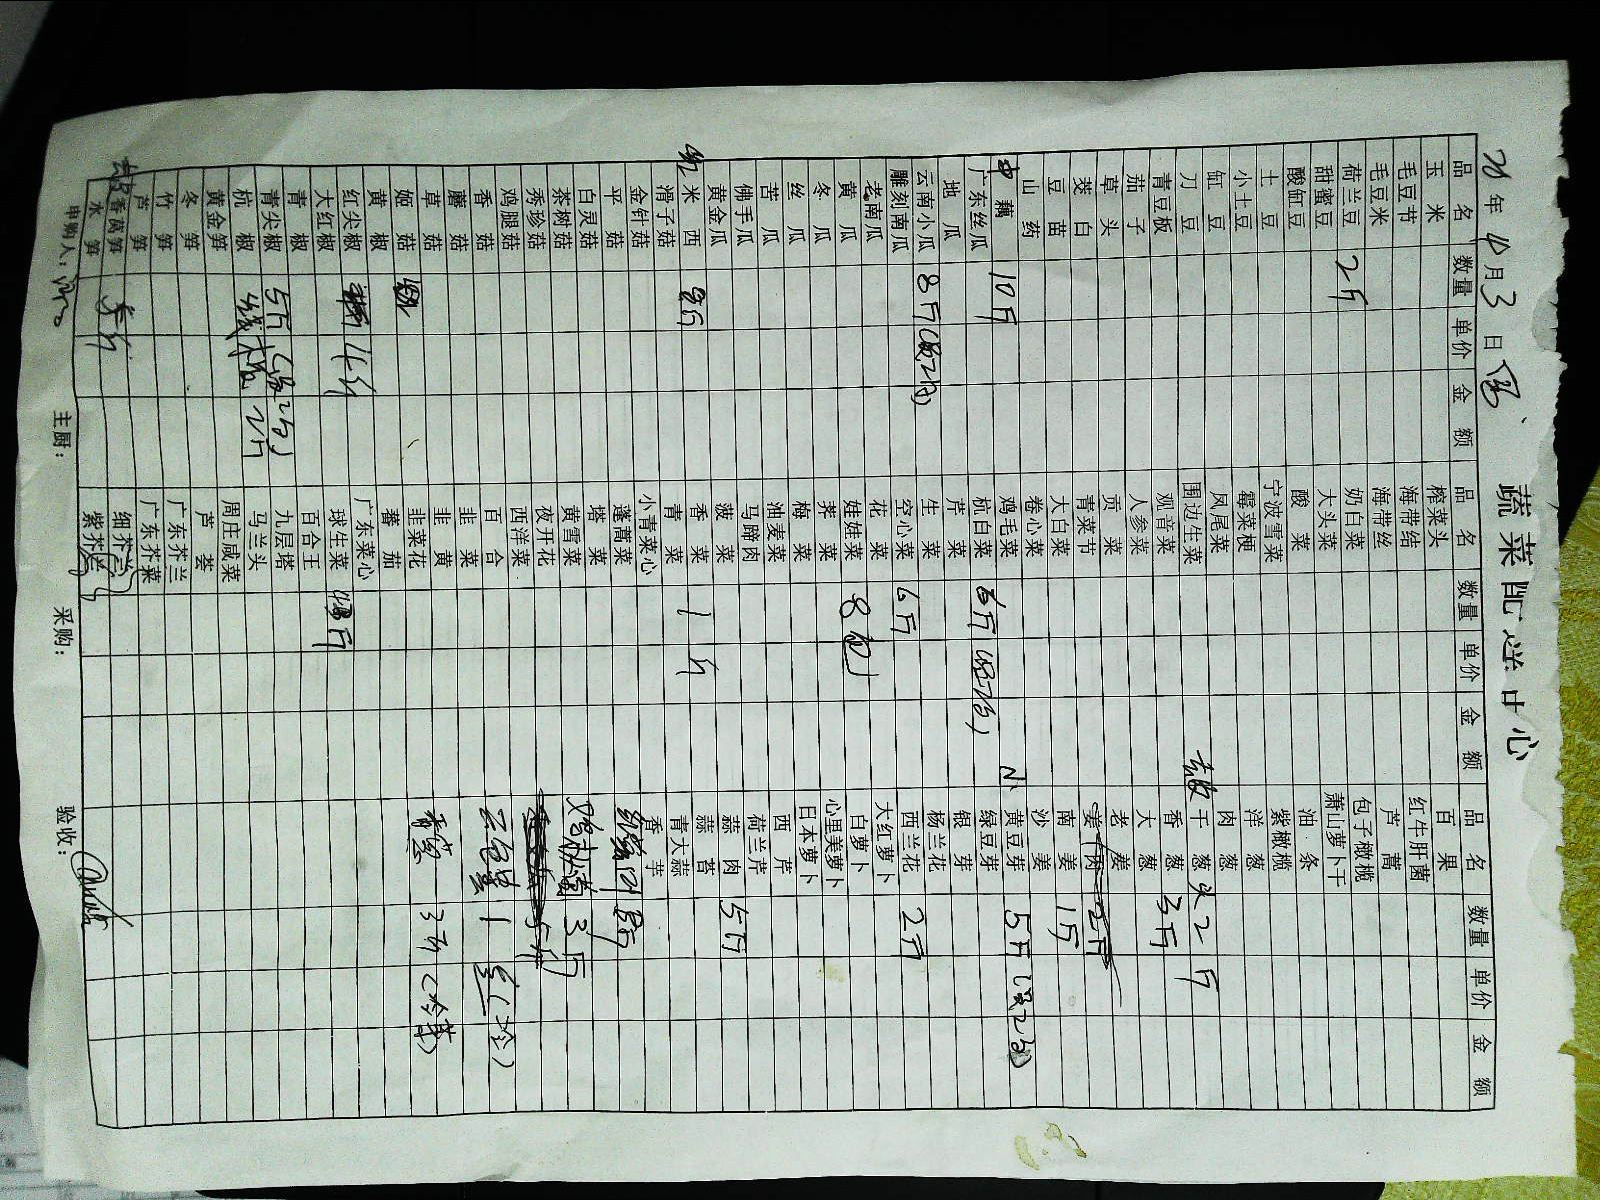 蔬菜配送中心
年 10月3日
品名 数量 单价 金额 品名 数量 单价 金额 品名 数量 单价 金额
玉米 榨菜头 百果
毛豆节 海带结 红牛肝菌
毛豆米 海带丝 芦蒿
荷兰豆 2斤 奶白菜 包子橄榄
甜蜜豆 大头菜 萧山萝卜干
酸缸豆 酸菜 油条
土豆 宁波雪菜 紫橄榄
小土豆 霉菜梗 洋葱
缸豆 凤尾菜 肉葱
刀豆 围边生菜 干葱头 2斤
青豆板 观音菜 香葱 3斤
茄子 人参菜 大葱
草头 贡菜 老姜
茭白 青菜节 姜肉 2斤
豆苗 大白菜 南姜 1斤
山药 卷心菜 沙姜
中藕 10斤 鸡毛菜 小黄豆芽 5斤
广东丝瓜 杭白菜 6斤 绿豆芽
地瓜 芹菜 银芽
云南小瓜 8斤 生菜 杨兰花
雕刻南瓜 空心菜 6斤 西兰花 2斤
老南瓜 花菜 大红萝卜
黄瓜 娃娃菜 8包 白萝卜
冬瓜 荠菜 心里美萝卜
丝瓜 梅菜 日本萝卜
苦瓜 油麦菜 西芹
佛手瓜 马蹄肉 荷兰芹
黄金瓜 菠菜 蒜肉 5斤
红米西 香菜 1斤 蒜苔
滑子菇 青菜 青大蒜
金针菇 小青菜心 香芋
平菇 蓬蒿菜
白灵菇 塔菜 3斤
茶树菇 黄雪菜
秀珍菇 夜开花
鸡腿菇 西洋菜
香菇 百合
蘑菇 韭菜
草菇 韭黄 3斤
姬菇 韭菜花
黄椒 蕃茄
红尖椒 广东菜心
大红椒 球生菜
青椒 百合王
青尖椒 5斤 九层塔
杭椒 线椒 2斤 马兰头
黄金笋 周庄咸菜
冬笋 芦荟
竹笋 广东芥兰
芦笋 广东芥菜
香莴笋 细芥兰
水笋 紫芥兰
申购人： 主厨： 采购： 验收：